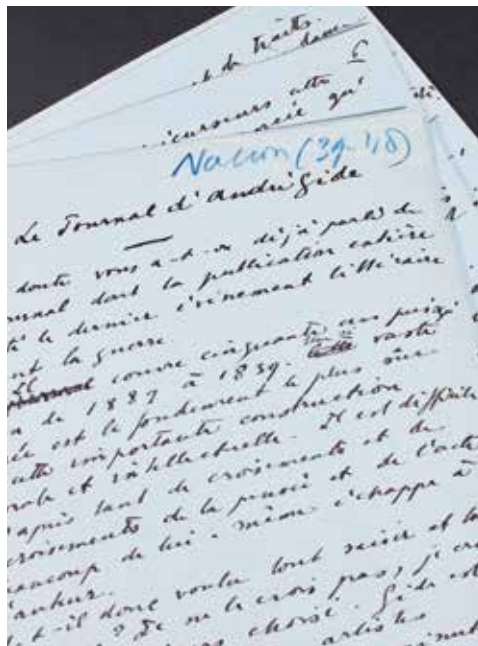 de traits.
dans
6
curseurs
qu'
Nacion (39-48)
Le Journal d'André Gide
doute vous a-t-on déjà parlé de
urnal dont la publication entière
té le dernier événement littéraire
nt la guerre.
Il
Journal couvre cinquante ans puisqu'
de 1889 à 1939. vaste
est le fondement le plus sûr
cette importante construction
orale et intellectuelle. Il est difficile
après tant de croisements et de
croisements de la pensée et de l'acte
eaucoup de lui-même échappe à
auteur.
t-il donc voulu tout saisir et
? Je ne le crois pas, je
choisi. Gide est
artistes